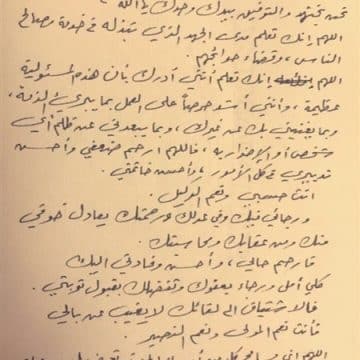 نحن نجتهد والتوفيق بيدك وحدك يا الله
اللهم إنك تعلم مدى الجهد الذي نبذله في خدمة ومصالح
الناس، وقضاء حوائجهم.
اللهم إنك تعلم أنني أدرك بأن هذه المسئولية
عظيمة، وأنني أشد حرصاً على العمل بما يبرئ الذمة،
وبما يغنيني بك عن غيرك، وبما يبعدني عن ظلم أي
شخص أو الإضرار به، فاللهم ارحم ضعفي وأحسن
تدبيري في كل الأمور، وأحسن خاتمتي.
أنت حسبي ونعم الوكيل.
ورجائي فيك وفي عدلك ورحمتك يعادل خوفي
منك ومن عقابك ومحاسبتك.
فارحم حالي، وأحسن وفادتي إليك
كلي أمل ورجاء بعفوك وتفضلك بقبول توبتي.
فالاشتياق إلى لقائك لا يغيب عن بالي
فأنت نعم المولى ونعم النصير
اللهم